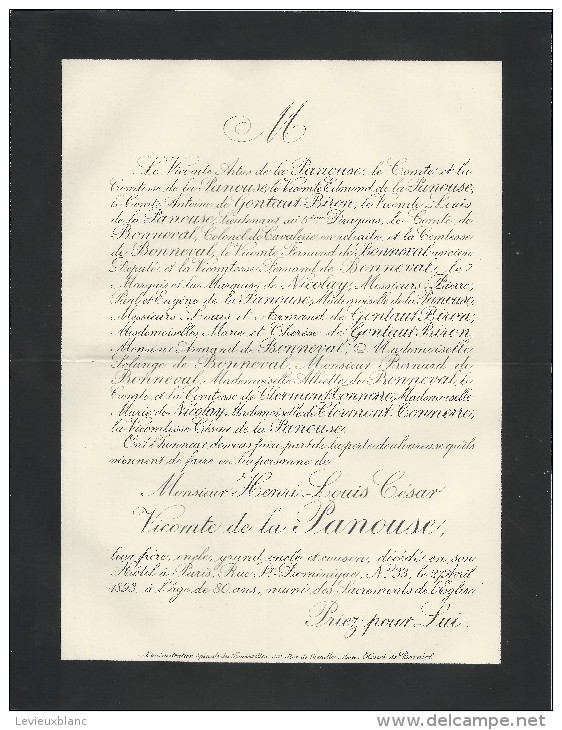 M
Le Vicomte Artus de la Panouse, le Comte et la
Comtesse de la Panouse, le Vicomte Edmond de la Panouse,
le Comte Antoine de Gontaut Biron, le Vicomte Louis
de la Panouse, Lieutenant au Dragons, le Comte de
Bonneval, Colonel de Cavalerie en retraite et la Comtesse
de Bonneval, le Vicomte Fernand de Bonneval ancien
Député et la Vicomtesse Fernand de Bonneval, le
Marquis et la Marquise de Nicolay, Messieurs Pierre,
Paul et Eugène de la Panouse, Mademoiselle de la Panouse,
Messieurs Louis et Armand de Gontaut Biron,
Mesdemoiselles Marie et Thérèse de Gontaut Biron
Monsieur Armand de Bonneval, Mademoiselle
Solange de Bonneval, Monsieur Bernard de
Bonneval, Mademoiselle de Bonneval, le
Comte et la Comtesse de Clermont Tonnerre, Mademoiselle
Marie de Nicolay, Mademoiselle de Clermont Tonnerre,
la Vicomtesse César de la Panouse.
Ont l'honneur de vous faire part de la perte douloureuse qu'ils
viennent de faire en la personne de
Monsieur Henri-Louis César
Vicomte de la Panouse,
leur frère, oncle, grand oncle et cousin, décédé en son
Hôtel à Paris, Rue St Dominique, No 33, le Avril
1893, à l'âge de 80 ans, muni des Sacrements de l'Eglise
Priez pour Lui
Administration spéciale des Funérailles
Levieuxblanc
www.delcampe.net